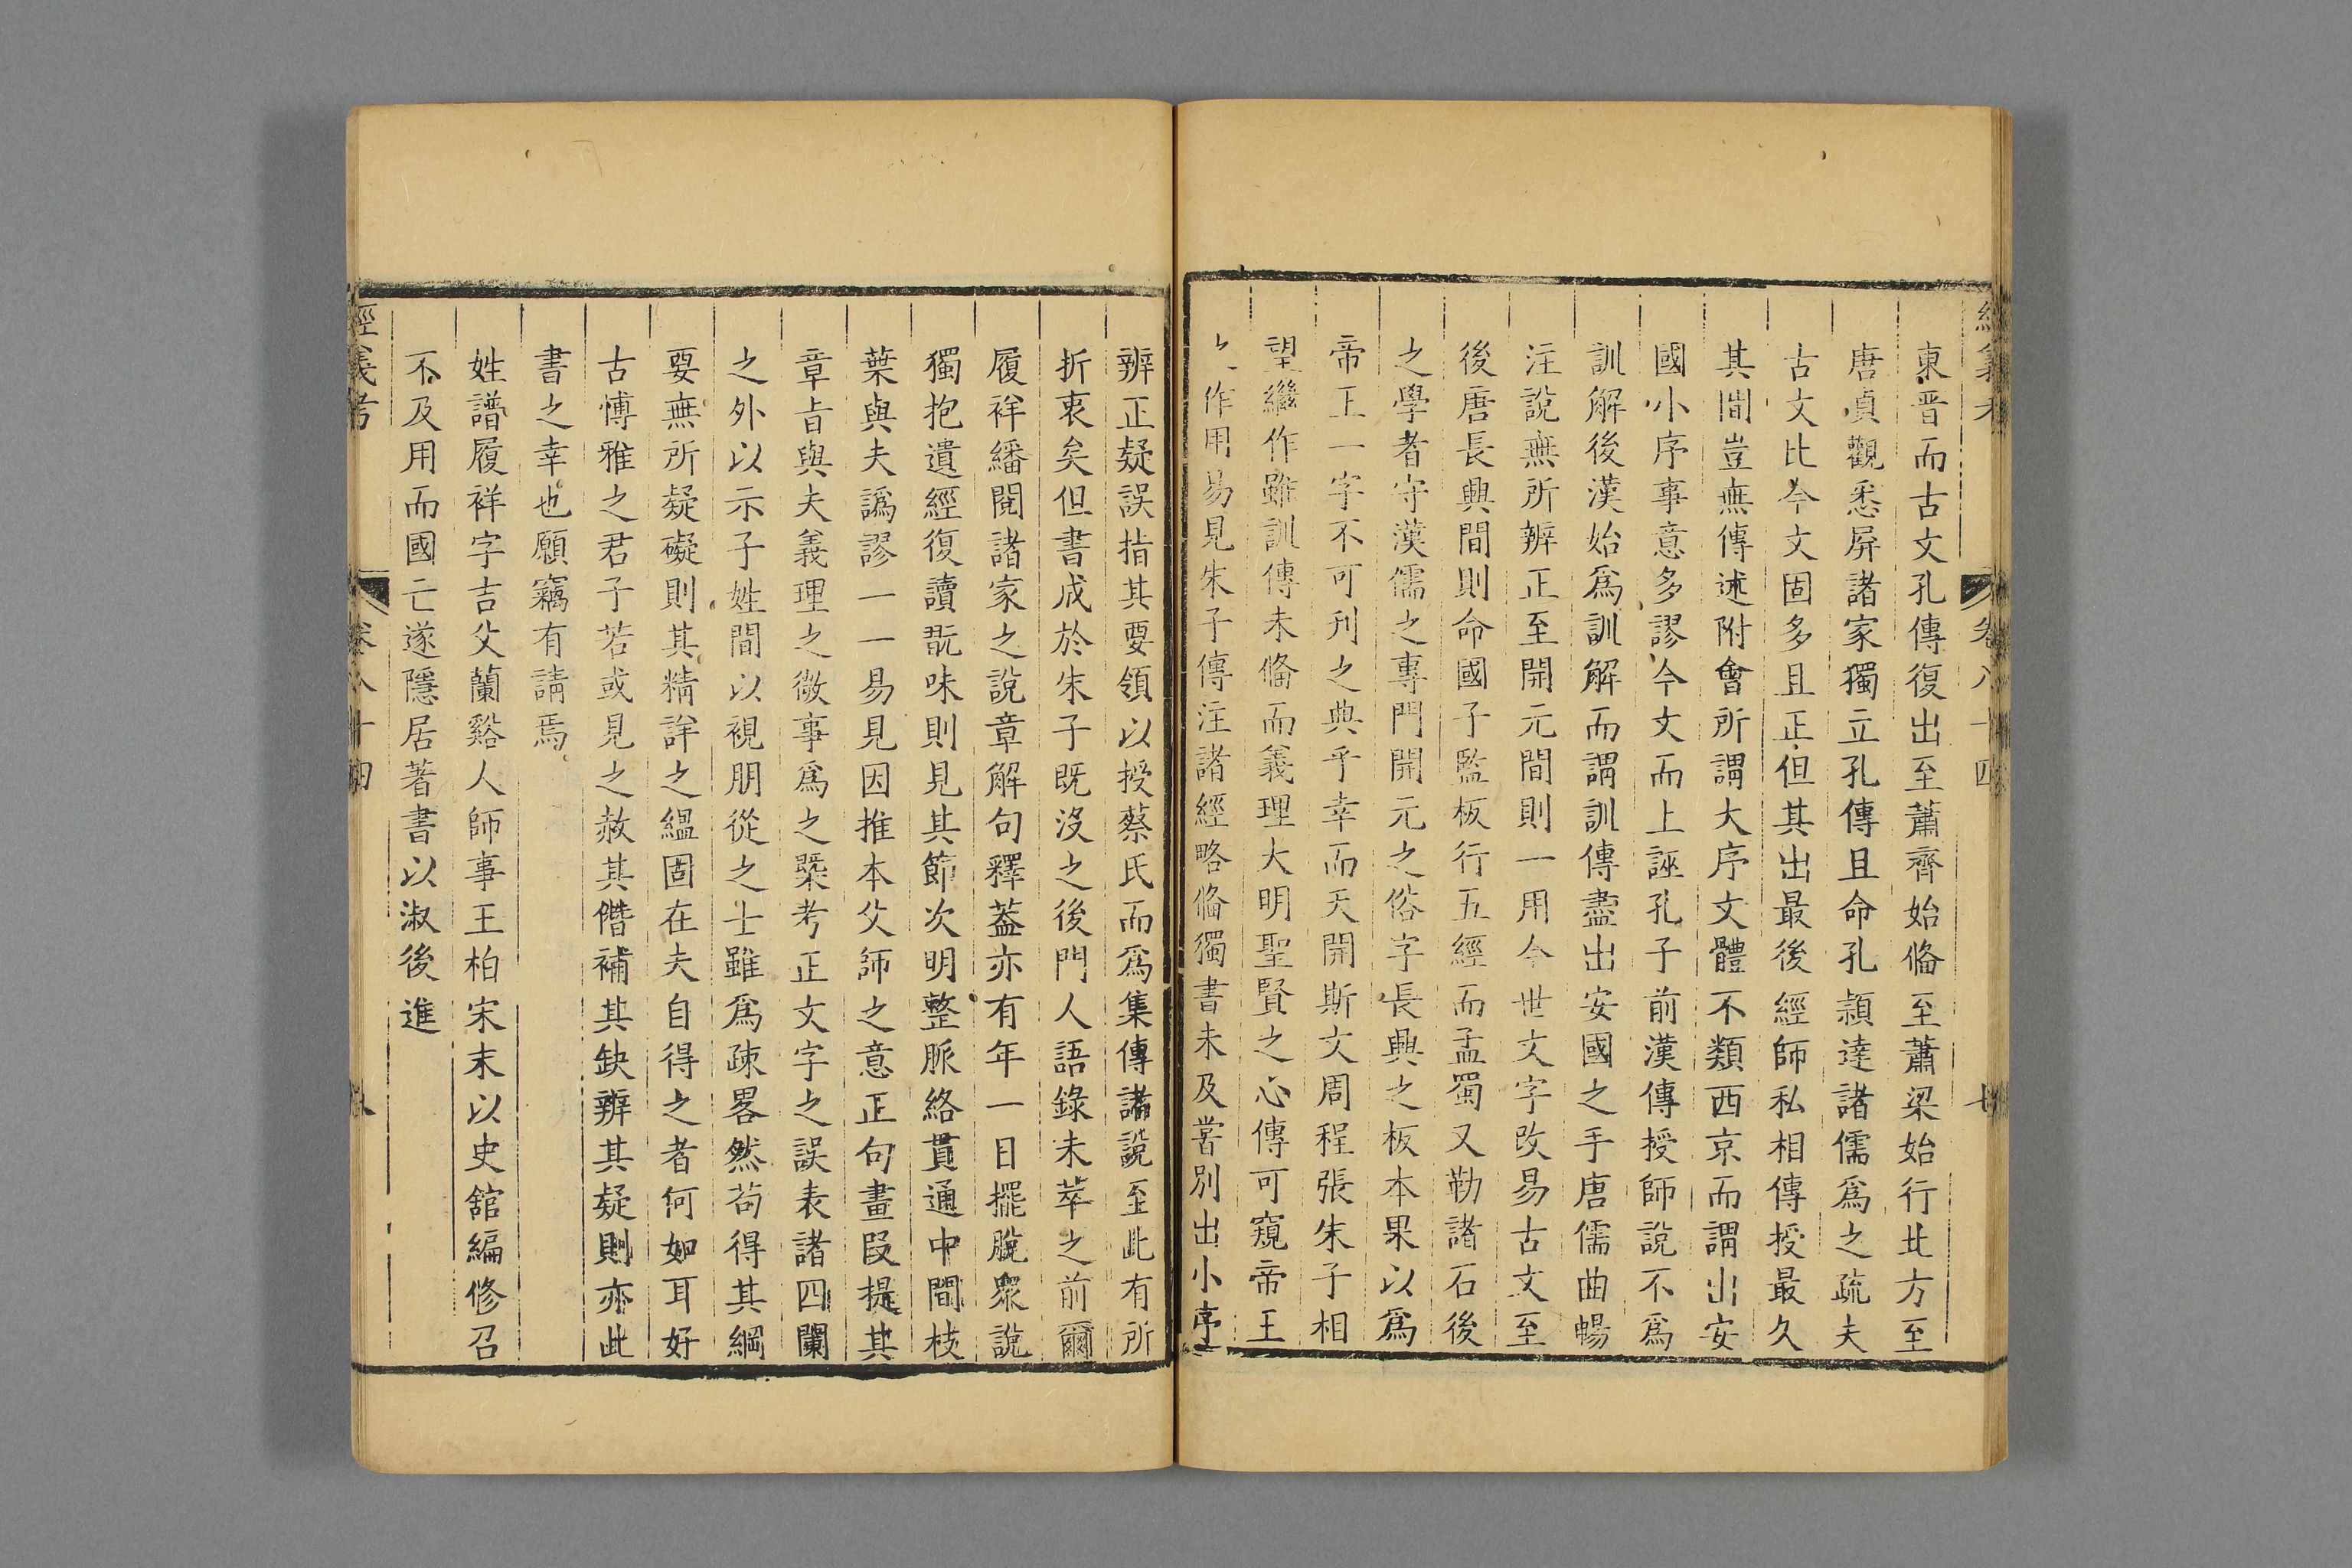 經義考
卷八十四
七
東晋而古文孔傳復出至蕭齊始偹至蕭梁始行北方至
唐貞觀悉屏諸家獨立孔傳且命孔頴達諸儒爲之疏夫
古文比今文固多且正但其出最後經師私相傳授最久
其間豈無傳述附會所謂大序文體不類西京而謂出安
國小序事意多謬今文而上誣孔子前漢傳授師說不爲
訓解後漢始爲訓解而謂訓傳盡出安國之手唐儒曲暢
注說無所辨正至開元間則一用今世文字改易古文至
後唐長興間則命國子監板行五經而孟蜀又勒諸石後
之學者守漢儒之專門開元之俗字長興之板本果以爲
帝王一字不可刊之典乎幸而天開斯文周程張朱子相
望繼作雖訓傳未偹而義理大明聖賢之心傳可窺帝王
之作用易見朱子傳注諸經略偹獨書未及嘗別出小序
辨正疑誤指其要領以授蔡氏而爲集傳諸說至此有所
折衷矣但書成於朱子既沒之後門人語錄未萃之前爾
履祥繙閱諸家之說章解句釋葢亦有年一日擺脫衆說
獨抱遺經復讀翫味則見其節次明整脈絡貫通中間枝
葉與夫譌謬一一易見因推本父師之意正句畫叚提其
章㫖與夫義理之微事爲之槩考正文字之誤表諸四闌
之外以示子姓間以視朋從之士雖爲疎畧然苟得其綱
要無所疑礙則其精詳之緼固在夫自得之者何如耳好
古愽雅之君子若或見之赦其僭補其缺辨其疑則亦此
書之幸也願竊有請焉
姓譜履祥字吉父蘭谿人師事王柏宋末以史舘編修召
不及用而國亡遂隱居著書以淑後進
經義考
卷八十四
八